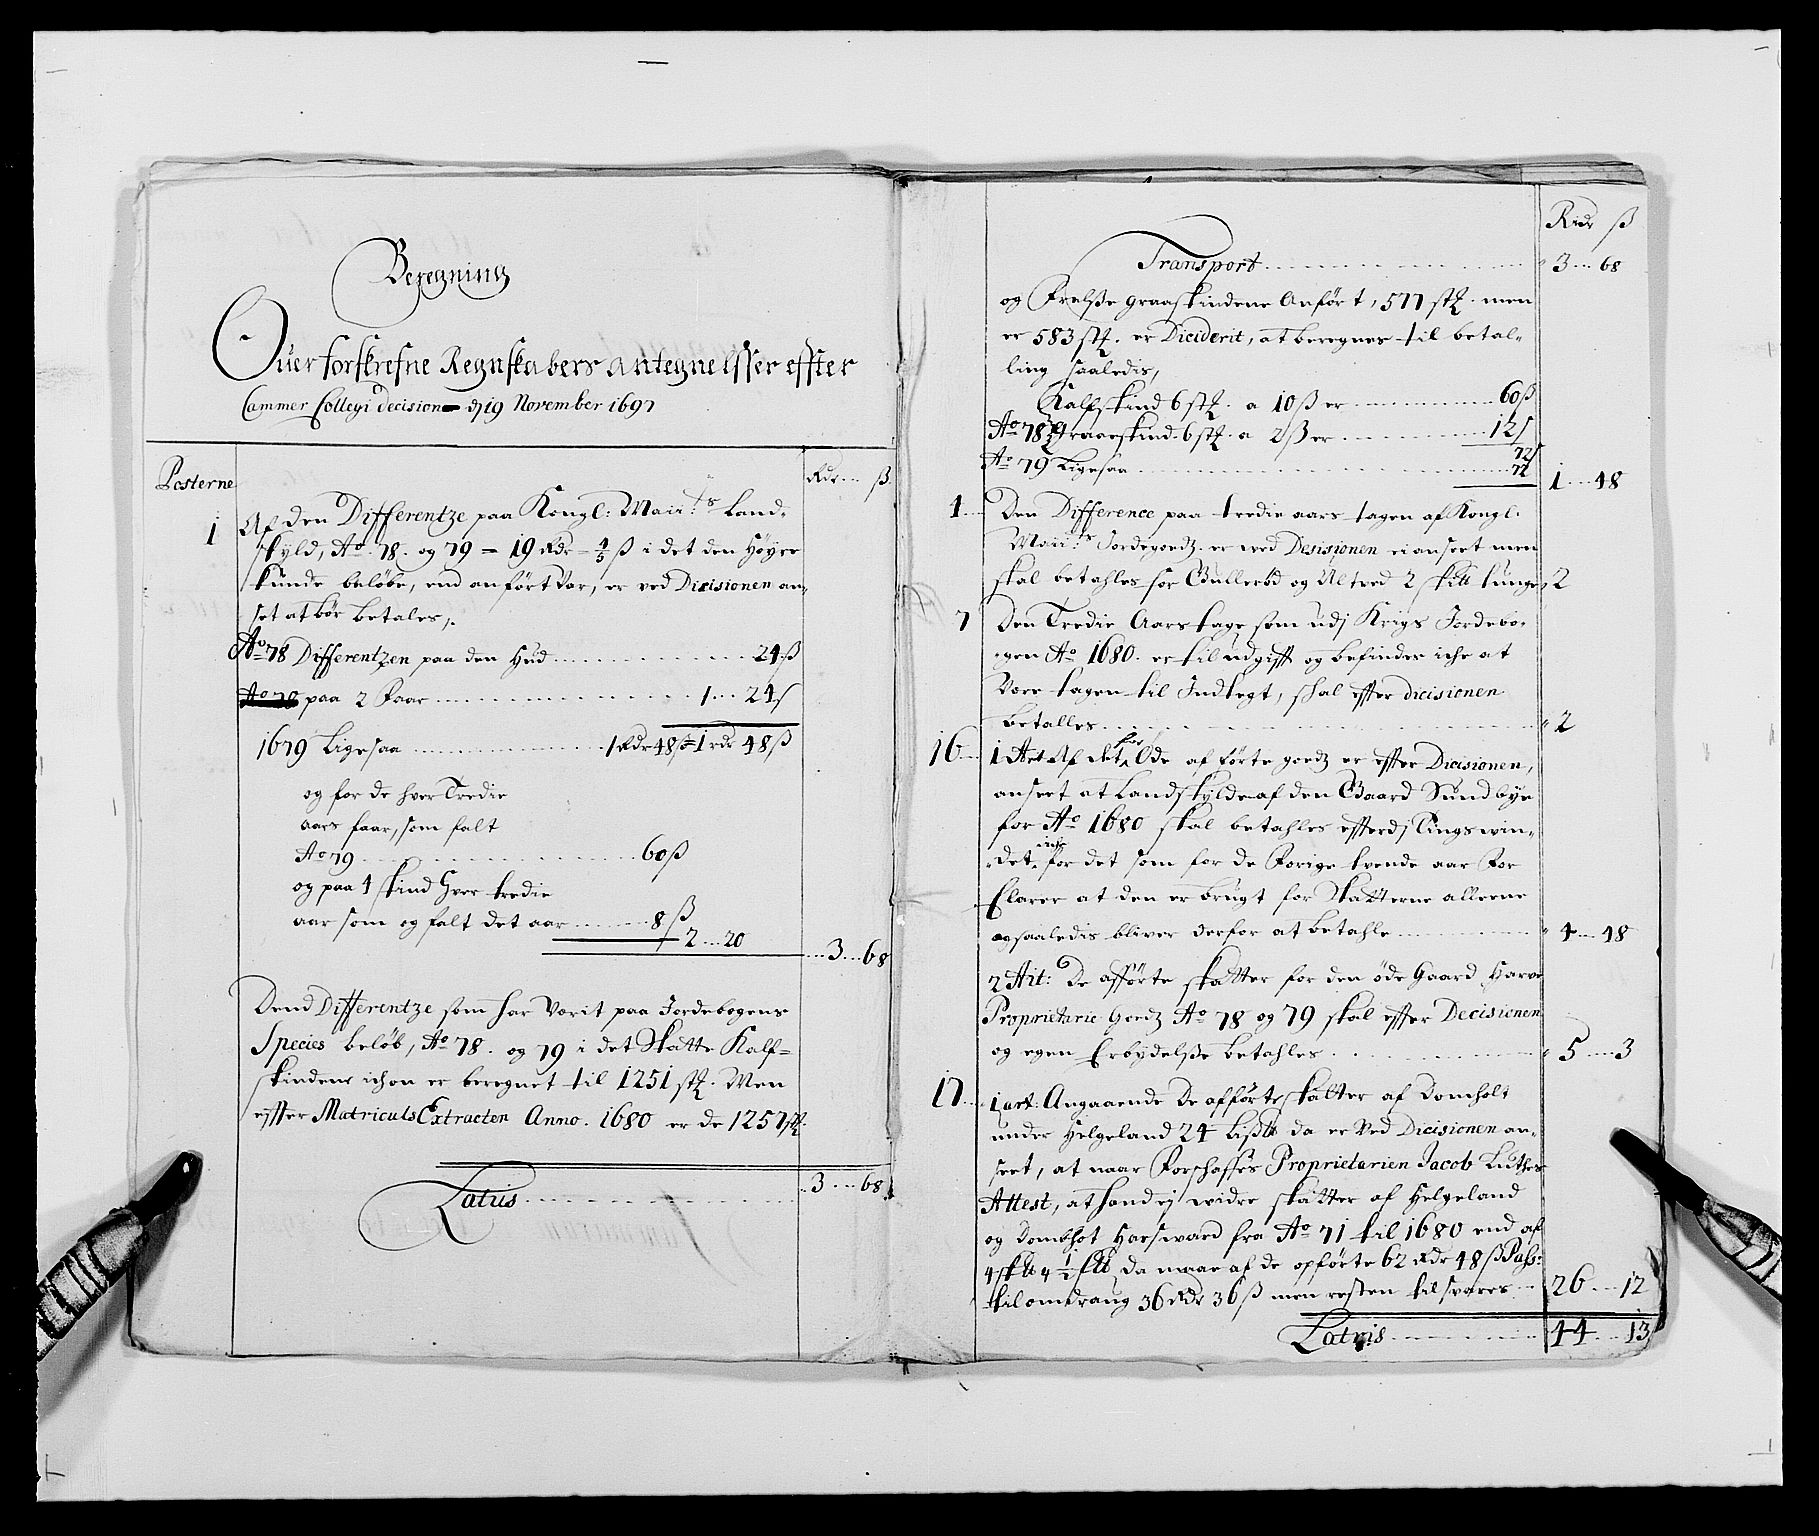 Beregning
Ofuer forskrefne Regnskabers Antegnelsser effter
Cammer Collegi decision d 19 November 1697
Posterne
Rdr ... ß
1 Af den Differentze paa Kongl: Maii:ts Land-
skyld, Ao. 78. og 79 - 19 Rdr - ß i det den Høyre
kunde beløbe, end anført var, er ved Dicisionen an-
set at bør betales,.
Ao 78 Differentzen paa den Hud ... 24 ß
paa 2 Faar ... 1 ... 24 ß
1679 Ligesaa ... 1 Rdr 48 ß = 1 rdr 48 ß
og for de hver Tredie
aars faar, som falt
Ao 79 ... 60 ß
og paa 4 skind hver tredie
aar som og falt det aar ... 8 ß
2 ... 20
... 3 ... 68
Dend Differentze som har Værit paa Jordebogens
Species beløb, Ao 78. og 79 i det Skatte Kalf-
skindene ichon er beregnet til 1251 stk. Men
effter Matriculs Extracten Anno. 1680 er de 1257 stk.
Latus ... 3 ... 68
Rdr ß
Transport ... 3 ... 68
og Frelsse graaskindene Anført, 577 stk. men
er 583 stk. er Diciderit, at beregnes til betal-
ling saaledis,
Kalfskind 6 stk. a 10 ß er ... 60 ß
Ao 78 Graaeskind 6 stk. a 2 ß er ... 12 ß
72
Ao 79 Ligesaa ... 72
1 ... 48
4 Den Difference paa tredie aars tagen af Kongl.
Maii:ts Jordegodz er ved Desisionen ei anseet men
skal betahles for Gullerød og Ultved 2 skill tunge 2
7 Den Tredie Aarstage som udj Krigs Jordebo-
gen Ao 1680. er til udgifft og befindes iche at
Vere tagen til Indtegt, skal effter dicisionen
betalles ... 2
16 1 Art Af det for Øde afførte goedz er effter Dicisionen,
anseet at Landskylden af den Gaard Sundbye
for Ao 1680 skal betahles efterdj Tingswin-
det iche for det som for de Forige tvende aar For
Clarer at den er brugt for Skatterne allerne
og saaledis bliver derfor at betahle ... 4 ... 48
2 Art: De afførte skatter for den øde Gaard Harve
Proprietarie Goedz Ao 78 og 79 skal effter Decisionen
og egen Erbydelsse betahles ... 5 ... 3
17 1 art: Angaaende De afførte skatter af Domholt
under Helgeland 24 Lißlb da er Ved Dicisionen an-
seet, at naar Forschaffes Proprietarien Jacob Luthes
Attest, at hand ej widre skatter af Helgeland
og Domholt Haf. waard fra Ao 71 til 1680 end af
da maae af de opførte 62 Rdr 48 ß Pass:
til omdrang 36 Rdr 36 ß men resten tilsvares ... 26 ... 12
Latus ... 44 ... 13